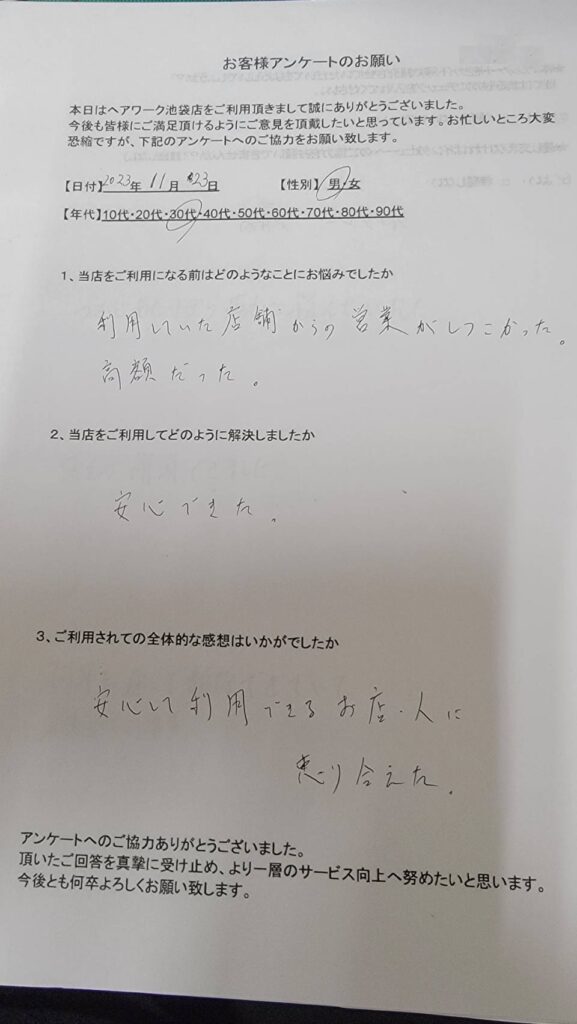 お客様アンケートのお願い
本日はヘアワーク池袋店をご利用頂きまして誠にありがとうございました。
今後も皆様にご満足頂けるようにご意見を頂戴したいと思っています。お忙しいところ大変
恐縮ですが、下記のアンケートへのご協力をお願い致します。
【日付】2023年 11月 23日 【性別】男・女
【年代】10代・20代・30代・40代・50代・60代・70代・80代・90代
1、当店をご利用になる前はどのようなことにお悩みでしたか
利用していた店舗からの営業がしつこかった。
高額だった。
2、当店をご利用してどのように解決しましたか
安心できた。
3、ご利用されての全体的な感想はいかがでしたか
安心して利用できるお店・人に
り合えた。
アンケートへのご協力ありがとうございました。
頂いたご回答を真摯に受け止め、より一層のサービス向上へ努めたいと思います。
今後とも何卒よろしくお願い致します。